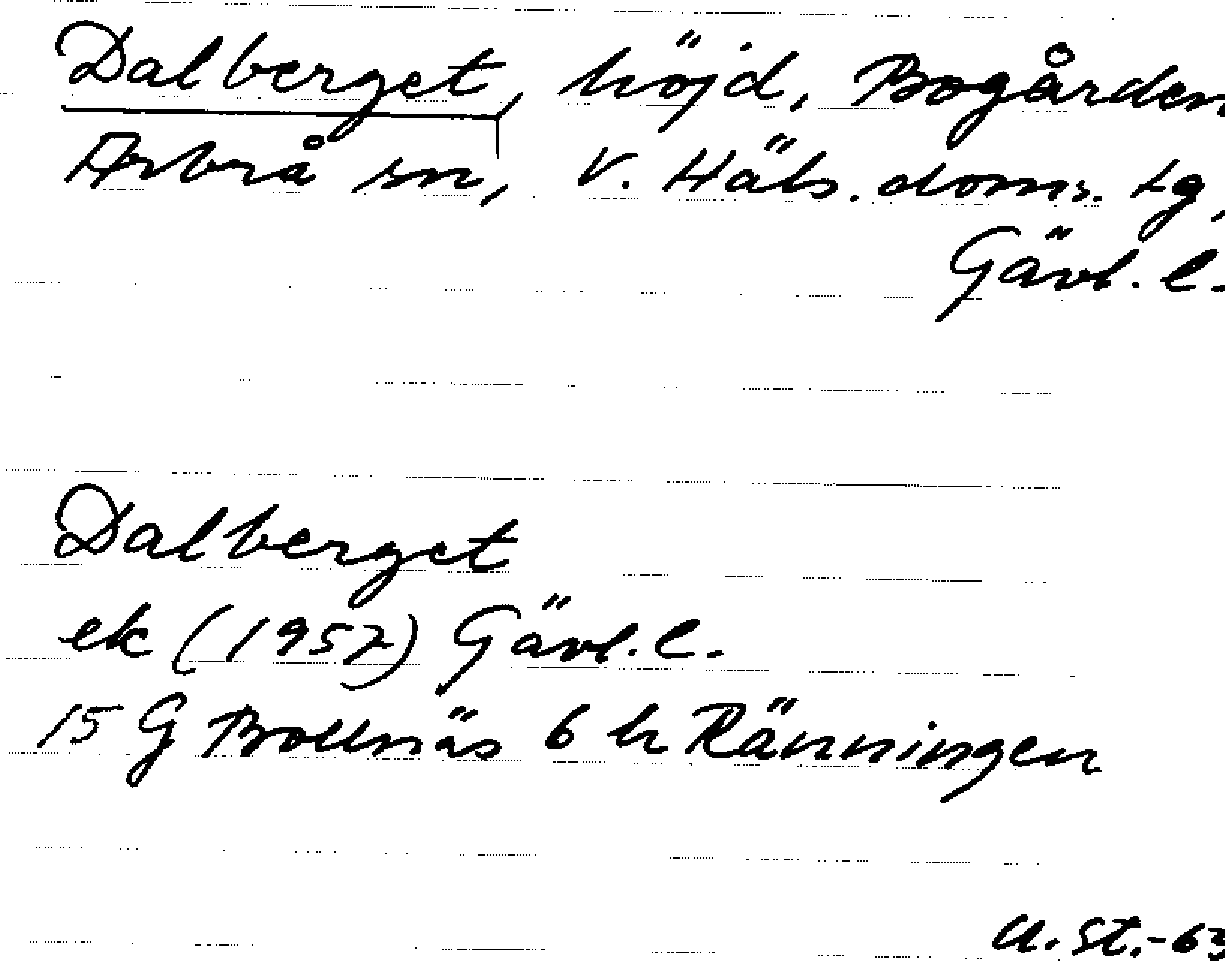 Dalberget, höjd, Bogården
Arbrå sn, V. Häls. doms. tg,
Gävl. l.
Dalberget
ek (1957) Gävl. l.
15 G Bollnäs 6 h Ränningen
U. St. -63